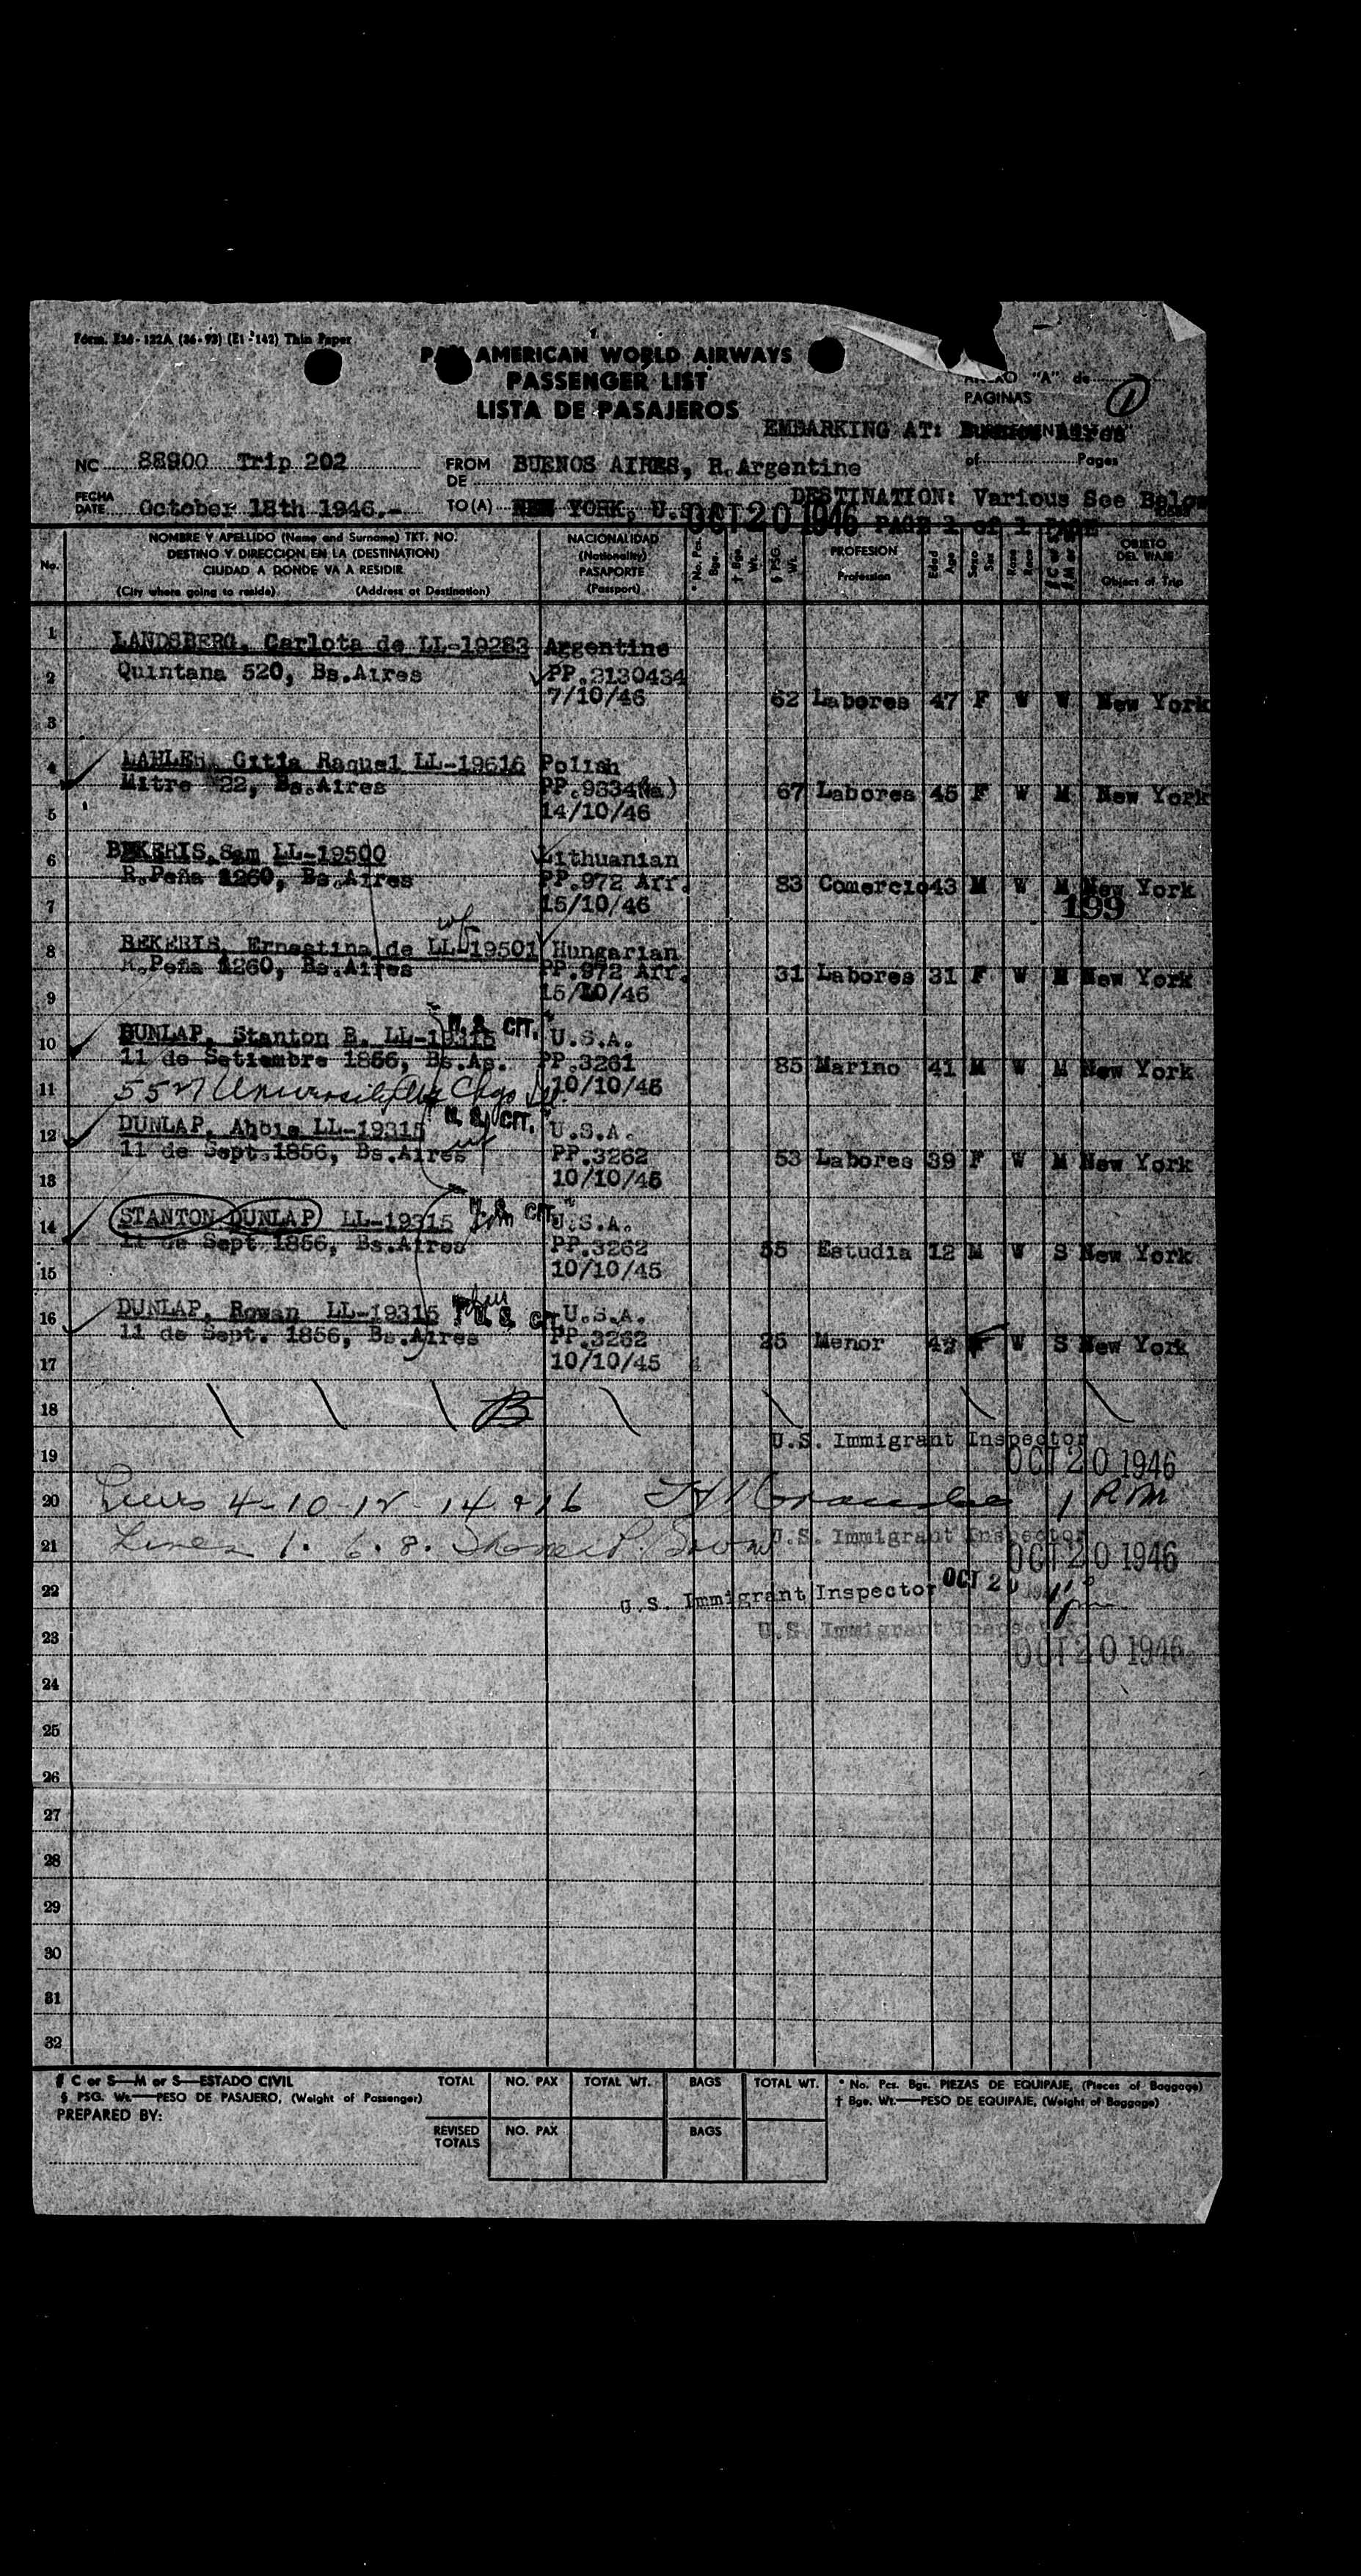 Form. E36-122A (36-93) (E1-142) Thin Paper
PAN AMERICAN WORLD AIRWAYS
PASSENGER LIST
LISTA DE PASAJEROS
"A" de
PAGINAS
1
EMBARKING AT: Buenos Aires
NC 88900 Trip 202
FROM
DE BUENOS AIRES, R.Argentine
of Pages
FECHA
DATE October 18th 1946.-
TO (A) NEW YORK, U.S.
DESTINATION: Various See Below
OCT 20 1946
PAGE 1 of 1 PAGE
No.
NOMBRE Y APELLIDO (Name and Surname) TKT. NO.
DESTINO Y DIRECCION EN LA (DESTINATION)
CIUDAD A DONDE VA A RESIDIR
(City where going to reside) (Address at Destination)
NACIONALIDAD
(Nationality)
PASAPORTE
(Passport)
* No. Pcs. Bgs.
† Bgs. Wt.
§ PSG. Wt.
PROFESION
Profession
Edad Age
Sexo Sex
Raza Race
OBJETO
DEL VIAJE
Object of Trip
1 LANDSBERG, Carlota de LL-19283 Argentine
2 Quintana 520, Bs.Aires PP.2130434
7/10/46 62 Labores 47 F W W New York
3
4 Gitla Raquel LL-19616 Polish
Mitre Bs.Aires PP.9334 67 Labores 45 F W M New York
5 14/10/46
6 BEKERIS, Sam LL-19500 Lithuanian
R.Peña 1260, Bs.Aires PP.972 Arr. 83 Comercio 43 M W M New York
7 15/10/46
199
wf
8 BEKERIS, Ernestina de LL-19501 Hungarian
R.Peña 1260, Bs.Aires PP.972 Arr. 31 Labores 31 F W M New York
9 15/10/46
U. S. CIT.
10 DUNLAP, Stanton B. LL-19315 U.S.A.
11 de Setiembre 1856, Bs.As. PP.3261 85 Marino 41 M W M New York
11 University Ave Chgo 10/10/45
U. S. CIT.
12 DUNLAP, LL-19315 U.S.A.
wf
11 de Sept.1856, Bs.Aires PP.3262 53 Labores 39 F W M New York
13 10/10/45
U. S. CIT.
14 STANTON DUNLAP LL-19315 U.S.A.
11 de Sept.1856, Bs.Aires PP.3262 55 Estudia 12 M W S New York
15 10/10/45
U. S. CIT.
16 DUNLAP, Rowan LL-19315 U.S.A.
11 de Sept. 1856, Bs.Aires PP.3262 25 Menor F W S New York
17 10/10/45
18 B
U.S. Immigrant Inspector
19 OCT 20 1946
20 Lines 4-10-12-14 & 16 1 PM
21 Lines 1. 6. 8. U.S. Immigrant Inspector
OCT 20 1946
22 U.S. Immigrant Inspector OCT 20
23 U.S. Immigrant Inspector
OCT 20 1946
24
25
26
27
28
29
30
31
32
C or S—M or S—ESTADO CIVIL
§ PSG. Wt.—PESO DE PASAJERO, (Weight of Passenger)
PREPARED BY:
TOTAL NO. PAX TOTAL WT. BAGS TOTAL WT.
REVISED
TOTALS NO. PAX BAGS
* No. Pcs. Bgs. PIEZAS DE EQUIPAJE, (Pieces of Baggage)
† Bgs. Wt.—PESO DE EQUIPAJE, (Weight of Baggage)